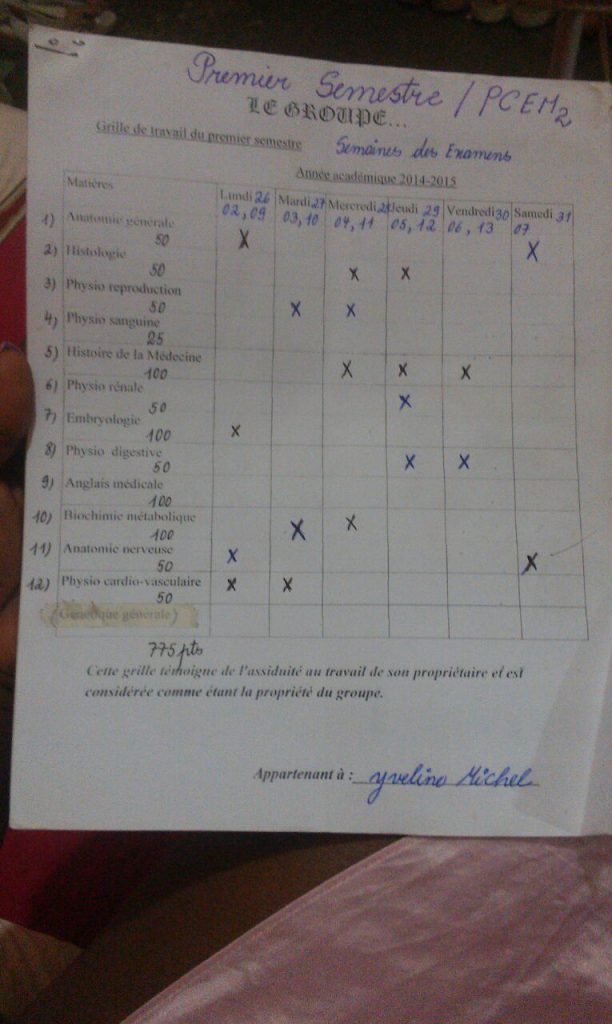 Premier Semestre / PCEM2
LE GROUPE...
Grille de travail du premier semestre Semaines des Examens
Année académique 2014-2015
Matières Lundi 26 Mardi 27 Mercredi 28 Jeudi 29 Vendredi 30 Samedi 31
02, 09 03, 10 04, 11 05, 12 06, 13 07
1) Anatomie générale X X
50
2) Histologie
50 X X
3) Physio reproduction
50 X X
4) Physio sanguine
25
5) Histoire de la Médecine X X X
100
6) Physio rénale X
50
7) Embryologie X
100
8) Physio digestive X X
50
9) Anglais médicale
100
10) Biochimie métabolique X X
100
11) Anatomie nerveuse X X
50
12) Physio cardio-vasculaire X X
50
(Génétique générale)
775 pts
Cette grille témoigne de l'assiduité au travail de son propriétaire et est
considérée comme étant la propriété du groupe.
Appartenant à : Yveline Michel